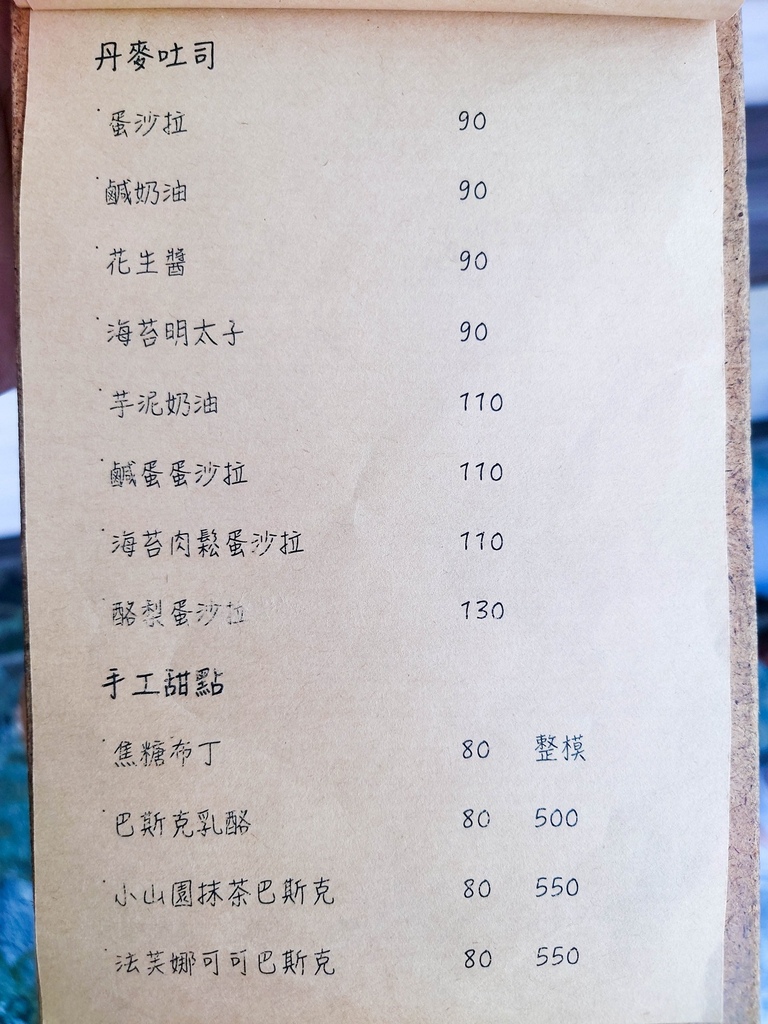 丹麥吐司
蛋沙拉 90
鹹奶油 90
花生醬 90
海苔明太子 90
芋泥奶油 110
鹹蛋蛋沙拉 110
海苔肉鬆蛋沙拉 110
酪梨蛋沙拉 130
手工甜點
焦糖布丁 80 整模
巴斯克乳酪 80 500
小山園抹茶巴斯克 80 550
法芙娜可可巴斯克 80 550